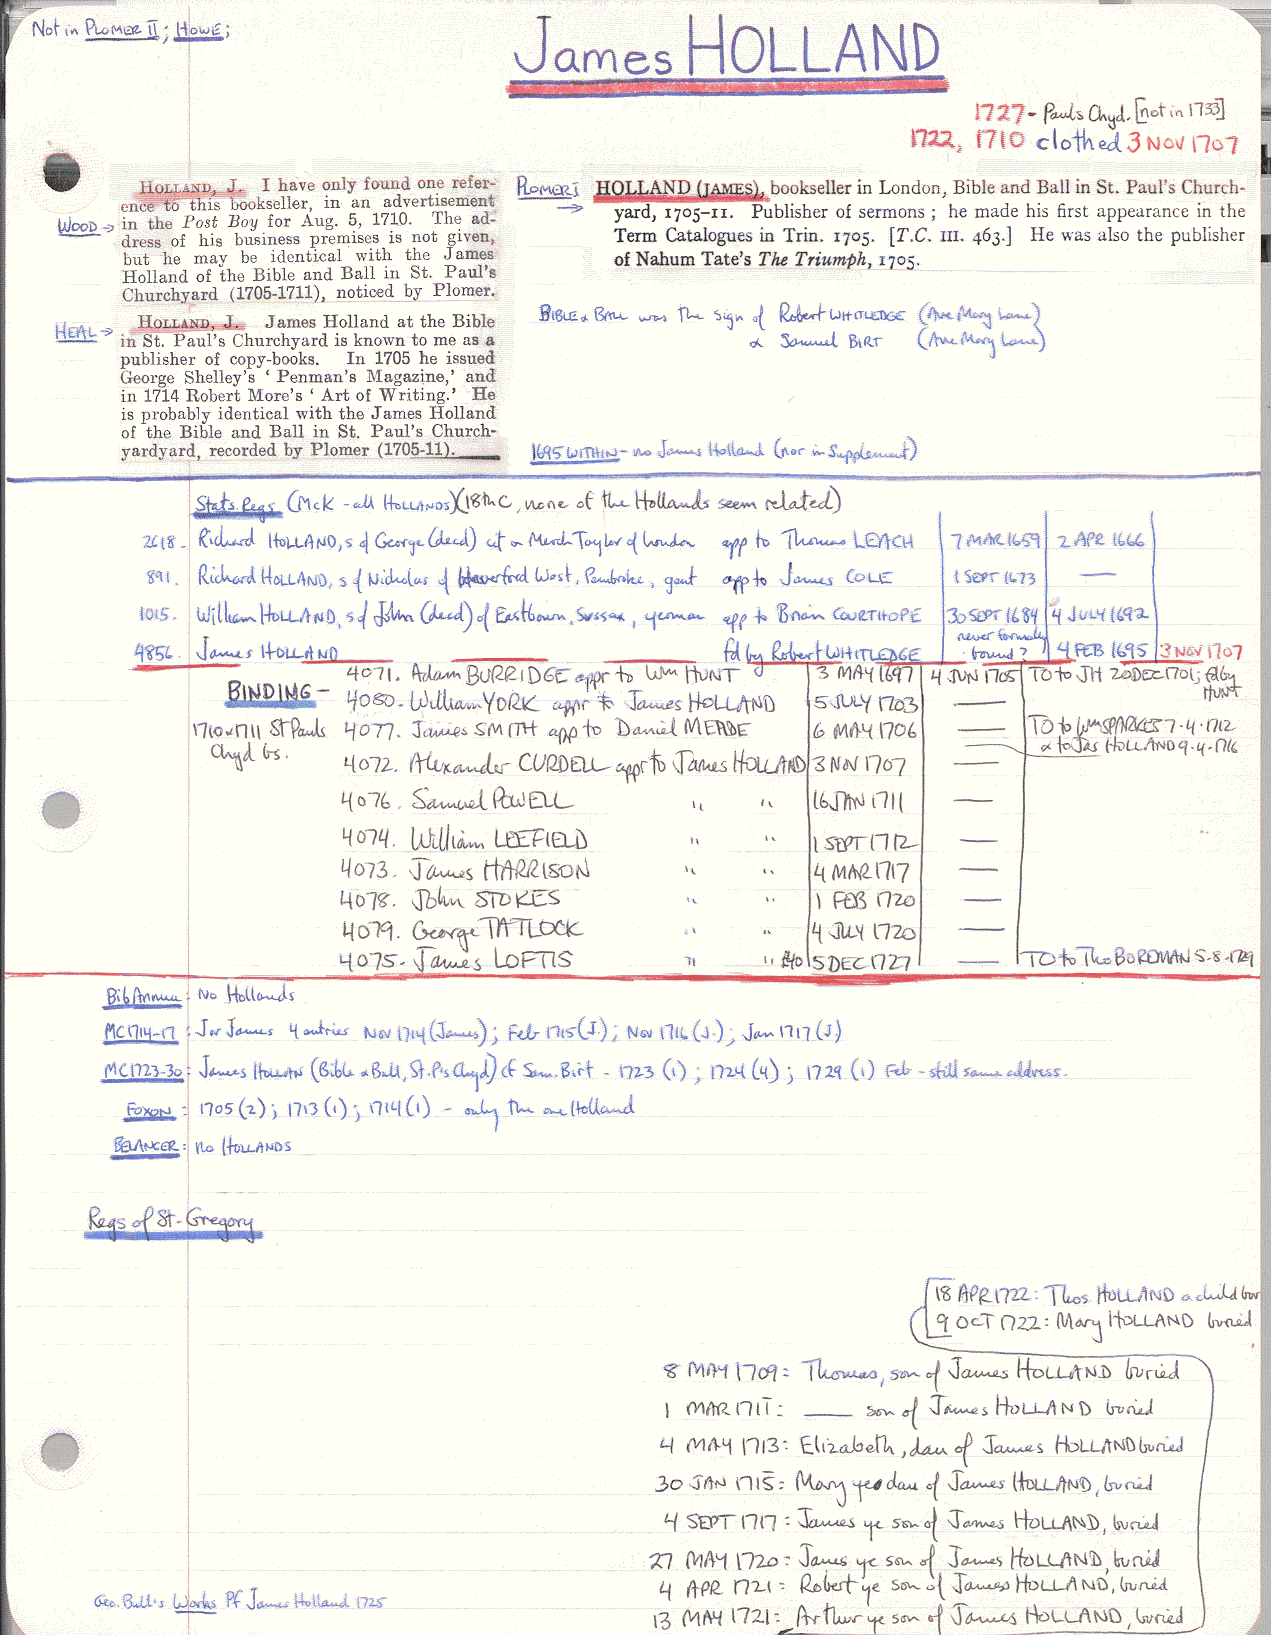 Not in PLOMER II; HOWE;
James HOLLAND
1727 - Pauls Chyd. [not in 1733]
1722, 1710 clothed 3 NOV 1707
WOOD →
HOLLAND, J. I have only found one refer-
ence to this bookseller, in an advertisement
in the Post Boy for Aug. 5, 1710. The ad-
dress of his business premises is not given,
but he may be identical with the James
Holland of the Bible and Ball in St. Paul's
Churchyard (1705-1711), noticed by Plomer.
HEAL →
HOLLAND, J. James Holland at the Bible
in St. Paul's Churchyard is known to me as a
publisher of copy-books. In 1705 he issued
George Shelley's ' Penman's Magazine,' and
in 1714 Robert More's ' Art of Writing.' He
is probably identical with the James Holland
of the Bible and Ball in St. Paul's Church-
yardyard, recorded by Plomer (1705-11).
PLOMER I →
HOLLAND (JAMES), bookseller in London, Bible and Ball in St. Paul's Church-
yard, 1705-11. Publisher of sermons ; he made his first appearance in the
Term Catalogues in Trin. 1705. [T.C. III. 463.] He was also the publisher
of Nahum Tate's The Triumph, 1705.
BIBLE & BALL was the sign of Robert WHITLEDGE (Ave Mary Lane)
& Samuel BIRT (Ave Mary Lane)
1695 WITHIN - no James Holland (nor in Supplement)
Stats. Regs (McK - all HOLLANDS) (18th C, none of the Hollands seem related)
2618. Richard HOLLAND, s of George (decd) cit & Merch Taylor of London app to Thomas LEACH 7 MAR 1659 2 APR 1666
891. Richard HOLLAND, s of Nicholas of Haverford West, Pembroke, gent app to James COLE 1 SEPT 1673 —
1015. William HOLLAND, s of John (decd) of Eastbourn, Sussex, yeoman app to Brian COURTHOPE 30 SEPT 1684 4 JULY 1692
4856. James HOLLAND fd by Robert WHITLEDGE never formally bound? 4 FEB 1695 3 NOV 1707
BINDING -
1710 & 1711 St Pauls
Chyd bs.
4071. Adam BURRIDGE appr to Wm HUNT 3 MAY 1697 4 JUN 1705 TO to JH 20 DEC 1701; fd by HUNT
4080. William YORK appr to James HOLLAND 5 JULY 1703 —
4077. James SMITH app to Daniel MEADE 6 MAY 1706 — TO to Wm SPARKES 7-4-1712
& to Jas HOLLAND 9-4-1716
4072. Alexander CURDELL appr to James HOLLAND 3 NOV 1707 —
4076. Samuel POWELL " " 16 JAN 1711 —
4074. William LEEFIELD " " 1 SEPT 1712 —
4073. James HARRISON " " 4 MAR 1717 —
4078. John STOKES " " 1 FEB 1720 —
4079. George TATLOCK " " 4 JULY 1720 —
4075. James LOFTIS " " £40 5 DEC 1727 — TO to Tho BORDMAN 5-8-1729
Bib Annua: No Hollands
MC1714-17: J or James 4 entries Nov 1714 (James); Feb 1715 (J.); Nov 1716 (J.); Jan 1717 (J)
MC1723-30: James HOLLAN (Bible & Ball, St. P's Chyd) cf Sam. Birt - 1723 (1); 1724 (4); 1729 (1) Feb - still same address.
FOXON: 1705 (2); 1713 (1); 1714 (1) - only the one Holland
BELANGER: no HOLLANDS
Regs of St. Gregory
18 APR 1722: Thos HOLLAND a child bur
9 OCT 1722: Mary HOLLAND buried
8 MAY 1709: Thomas, son of James HOLLAND buried
1 MAR 1711: —— son of James HOLLAND buried
4 MAY 1713: Elizabeth, dau of James HOLLAND buried
30 JAN 1715: Mary ye dau of James HOLLAND, buried
4 SEPT 1717: James ye son of James HOLLAND, buried
27 MAY 1720: James ye son of James HOLLAND, buried
4 APR 1721: Robert ye son of James HOLLAND, buried
13 MAY 1721: Arthur ye son of James HOLLAND, buried
Geo. Bull's Works Pf James Holland 1725